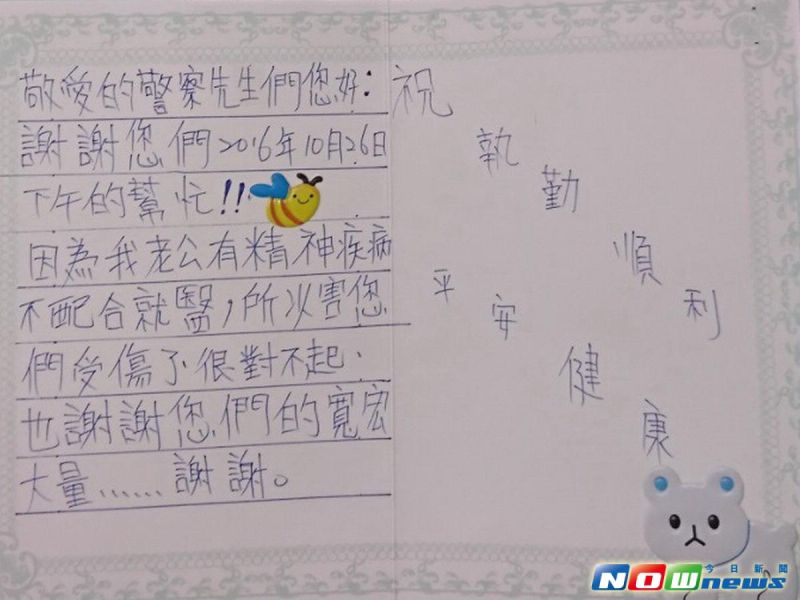 敬愛的警察先生們您好：
謝謝您們2016年10月26日
下午的幫忙!!
因為我老公有精神疾病
不配合就醫，所以害您
們受傷了很對不起.
也謝謝您們的寬宏
大量……謝謝。
祝
執勤順利
平安健康
今日新聞
NOWnews